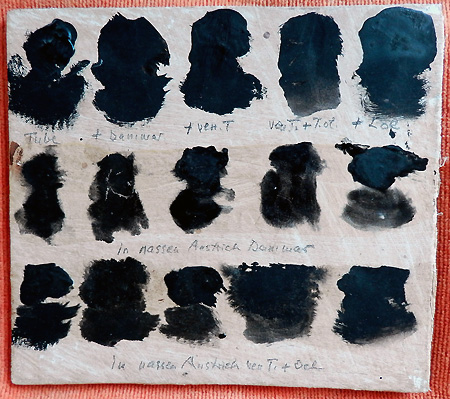 Tube + Dammar + Ven.T Ven.T. + T.öl. + Löl
In nassen Anstrich Dammar
In nassen Anstrich Ven T. + Oel